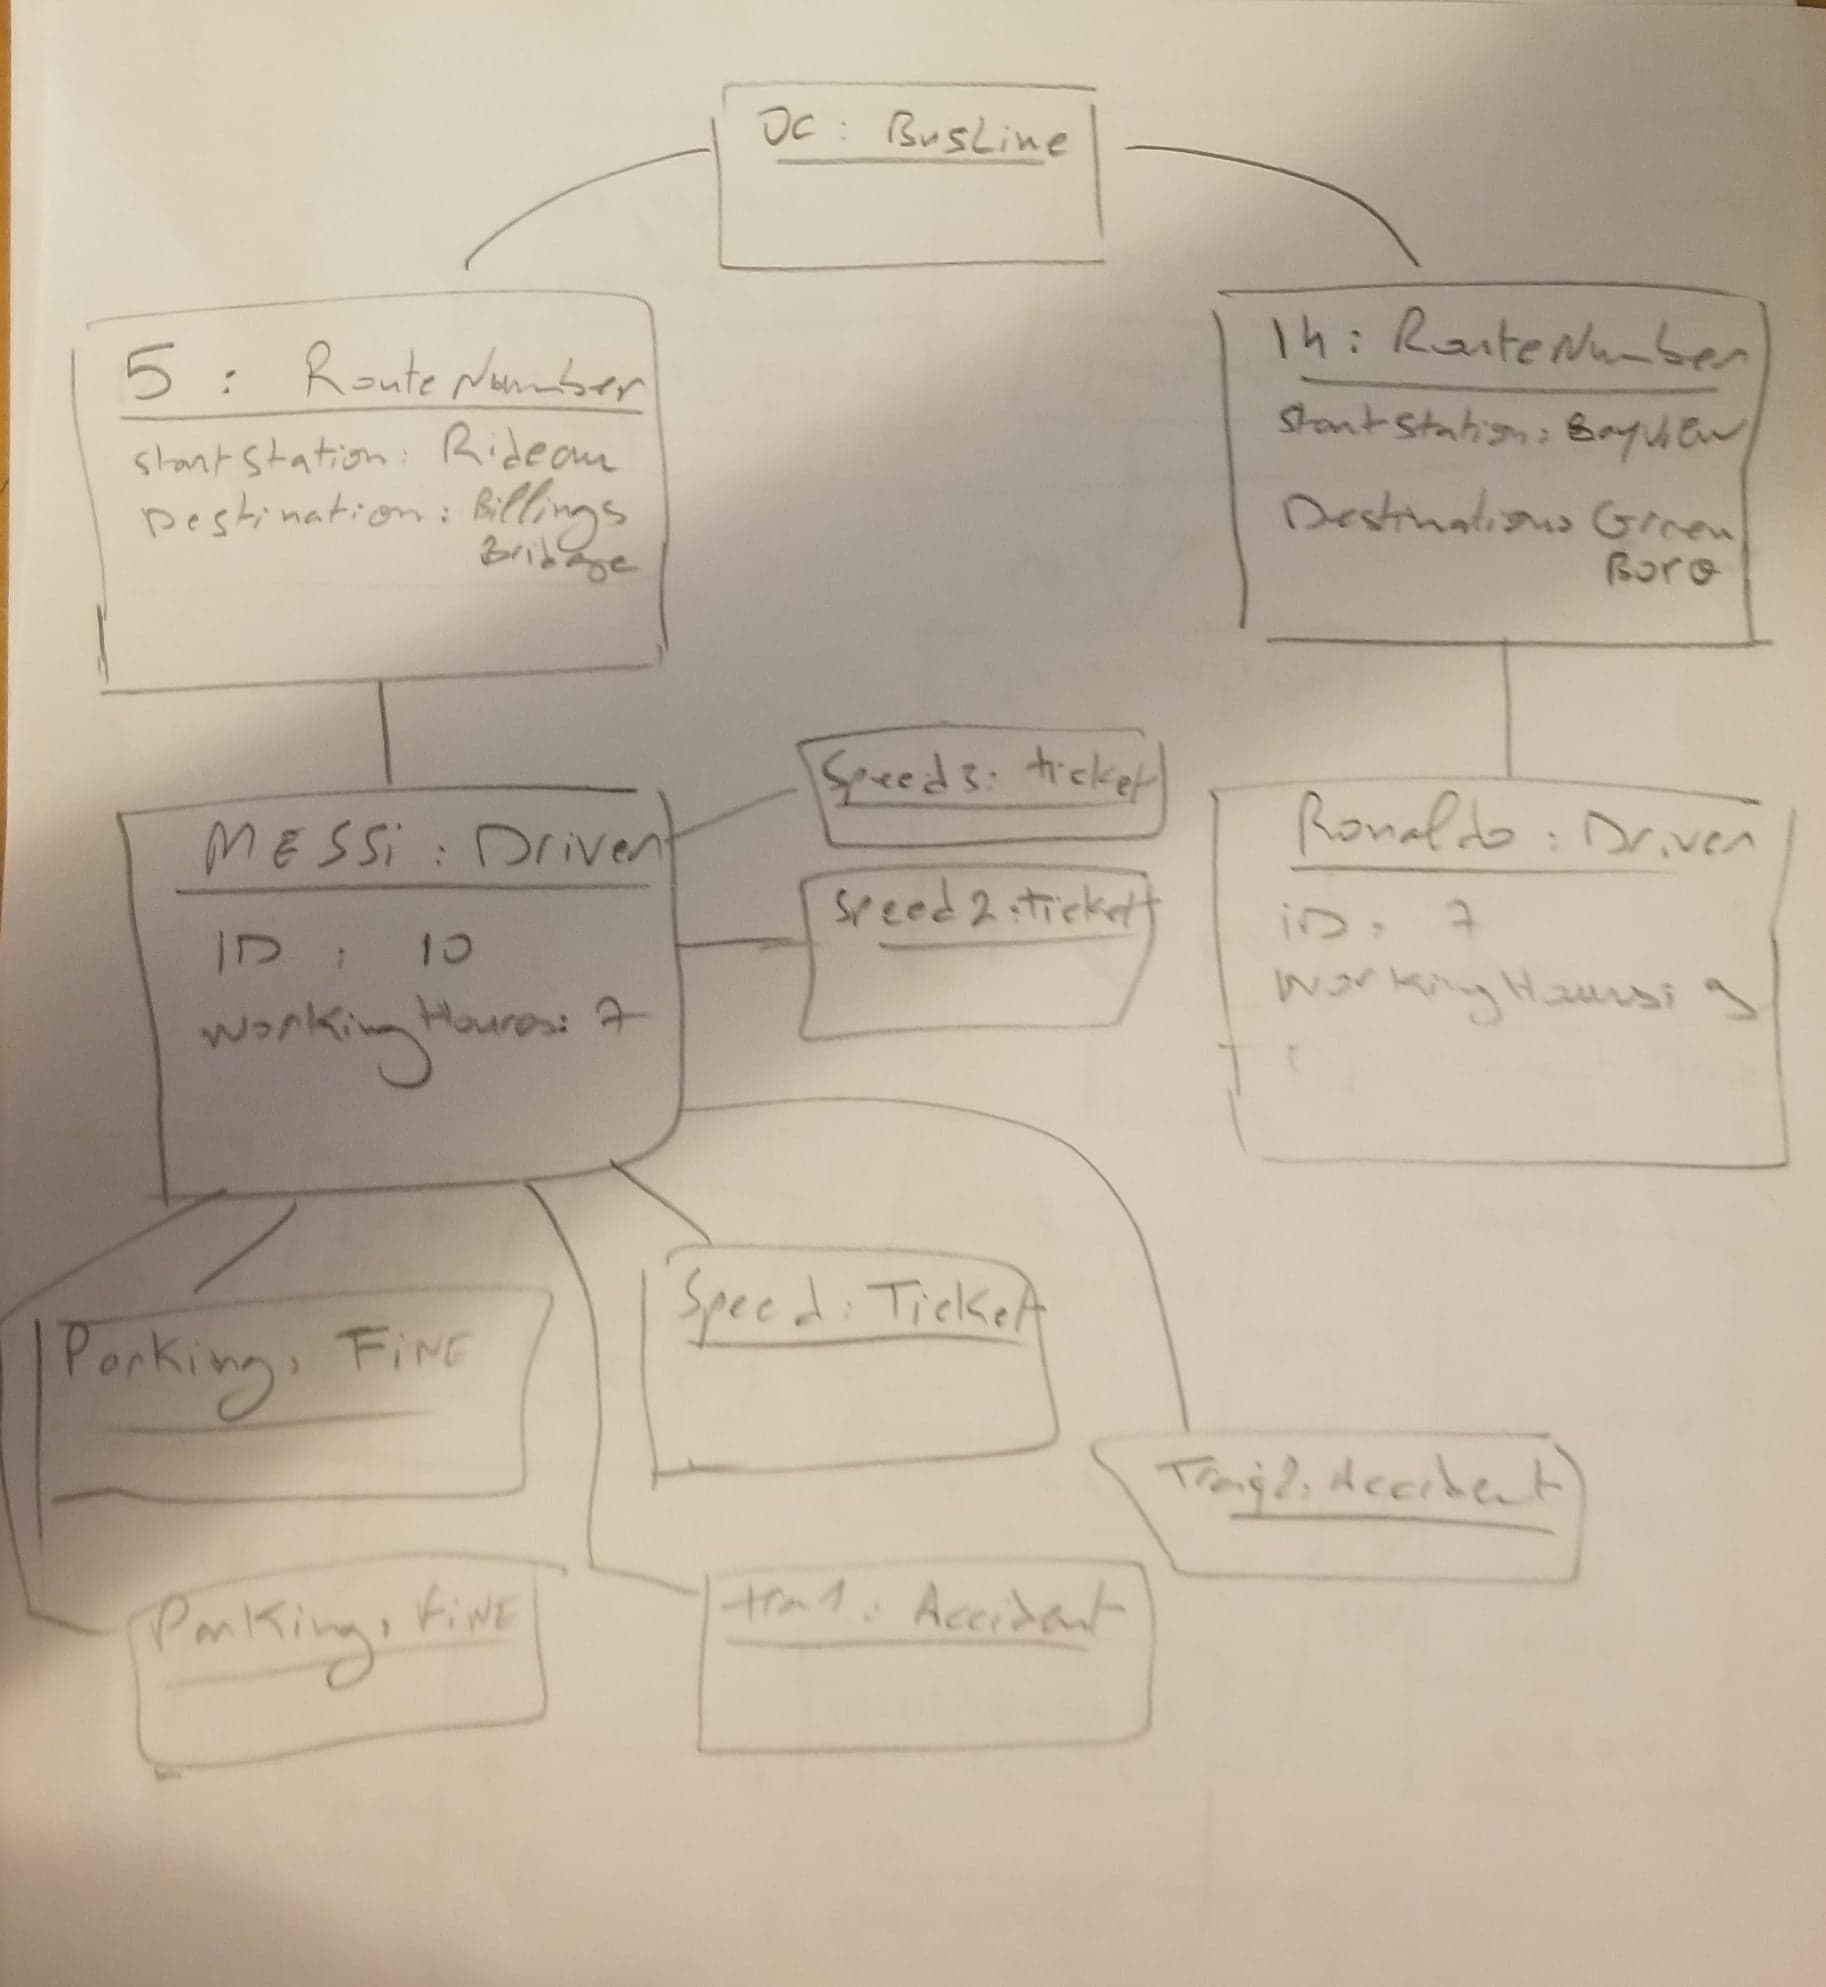 OC : BusLine
5 : RouteNumber
startStation: Rideau
Destination: Billings
Bridage
14 : RouteNumber
StartStation: BayView
Destination: Green
Boro
MESSi : Driver
ID : 10
WorkingHours: 7
Speed3: ticket
Speed2: ticket
Ronaldo : Driver
iD: 7
WorkingHours: 9
Parking: FiNE
Speed: Ticket
Accident
Parking: FiNE
tra1: Accident